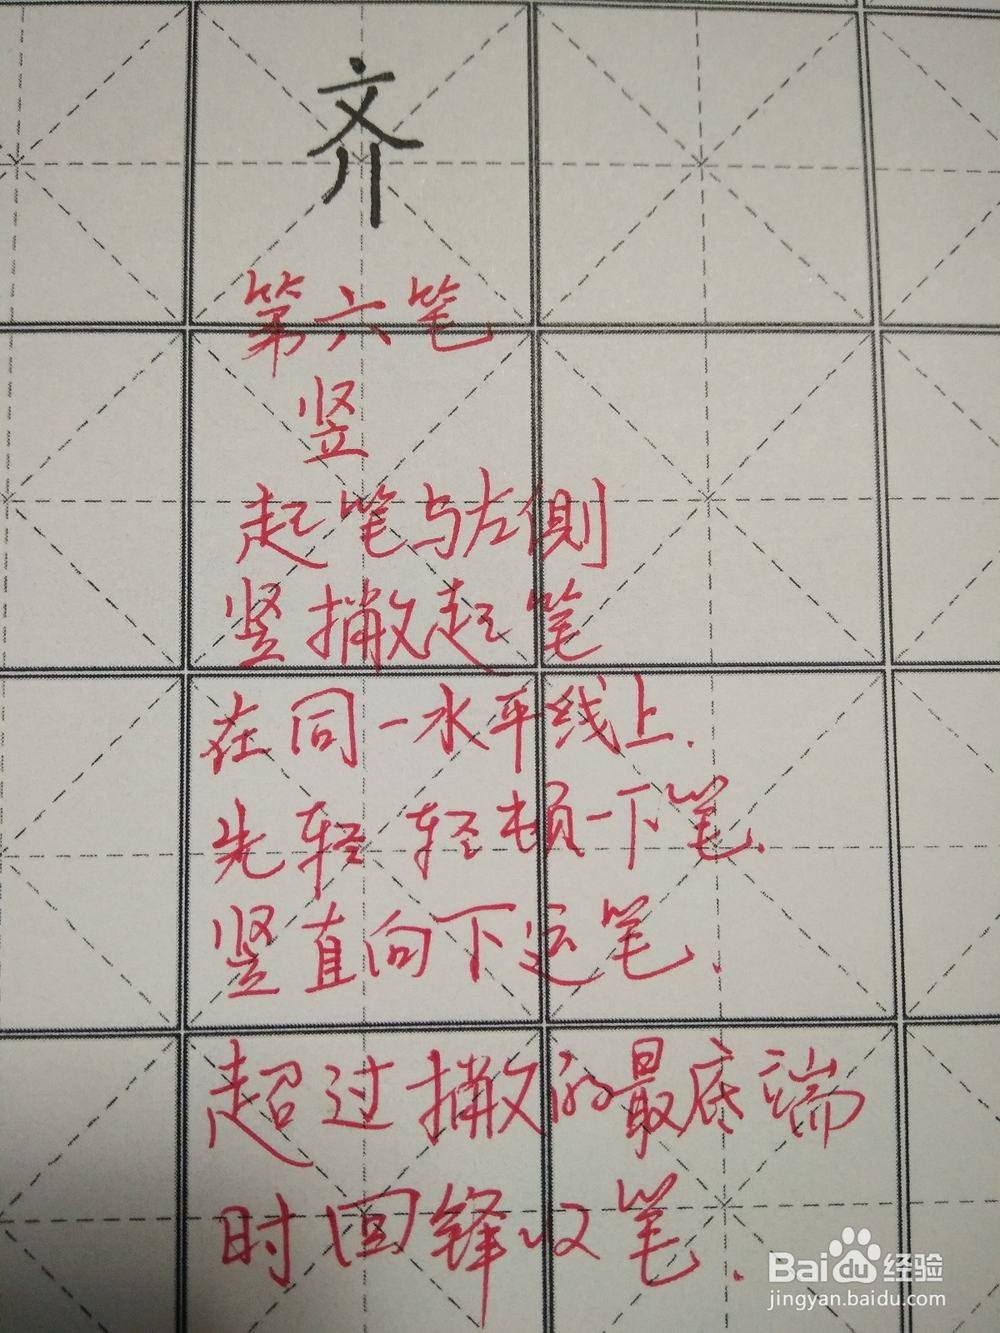 齐
第六笔
竖
起笔与左侧
竖撇起笔
在同一水平线上.
先轻轻顿一下笔.
竖直向下运笔.
超过撇的最底端
时回锋收笔.
Baidu经验
jingyan.baidu.com